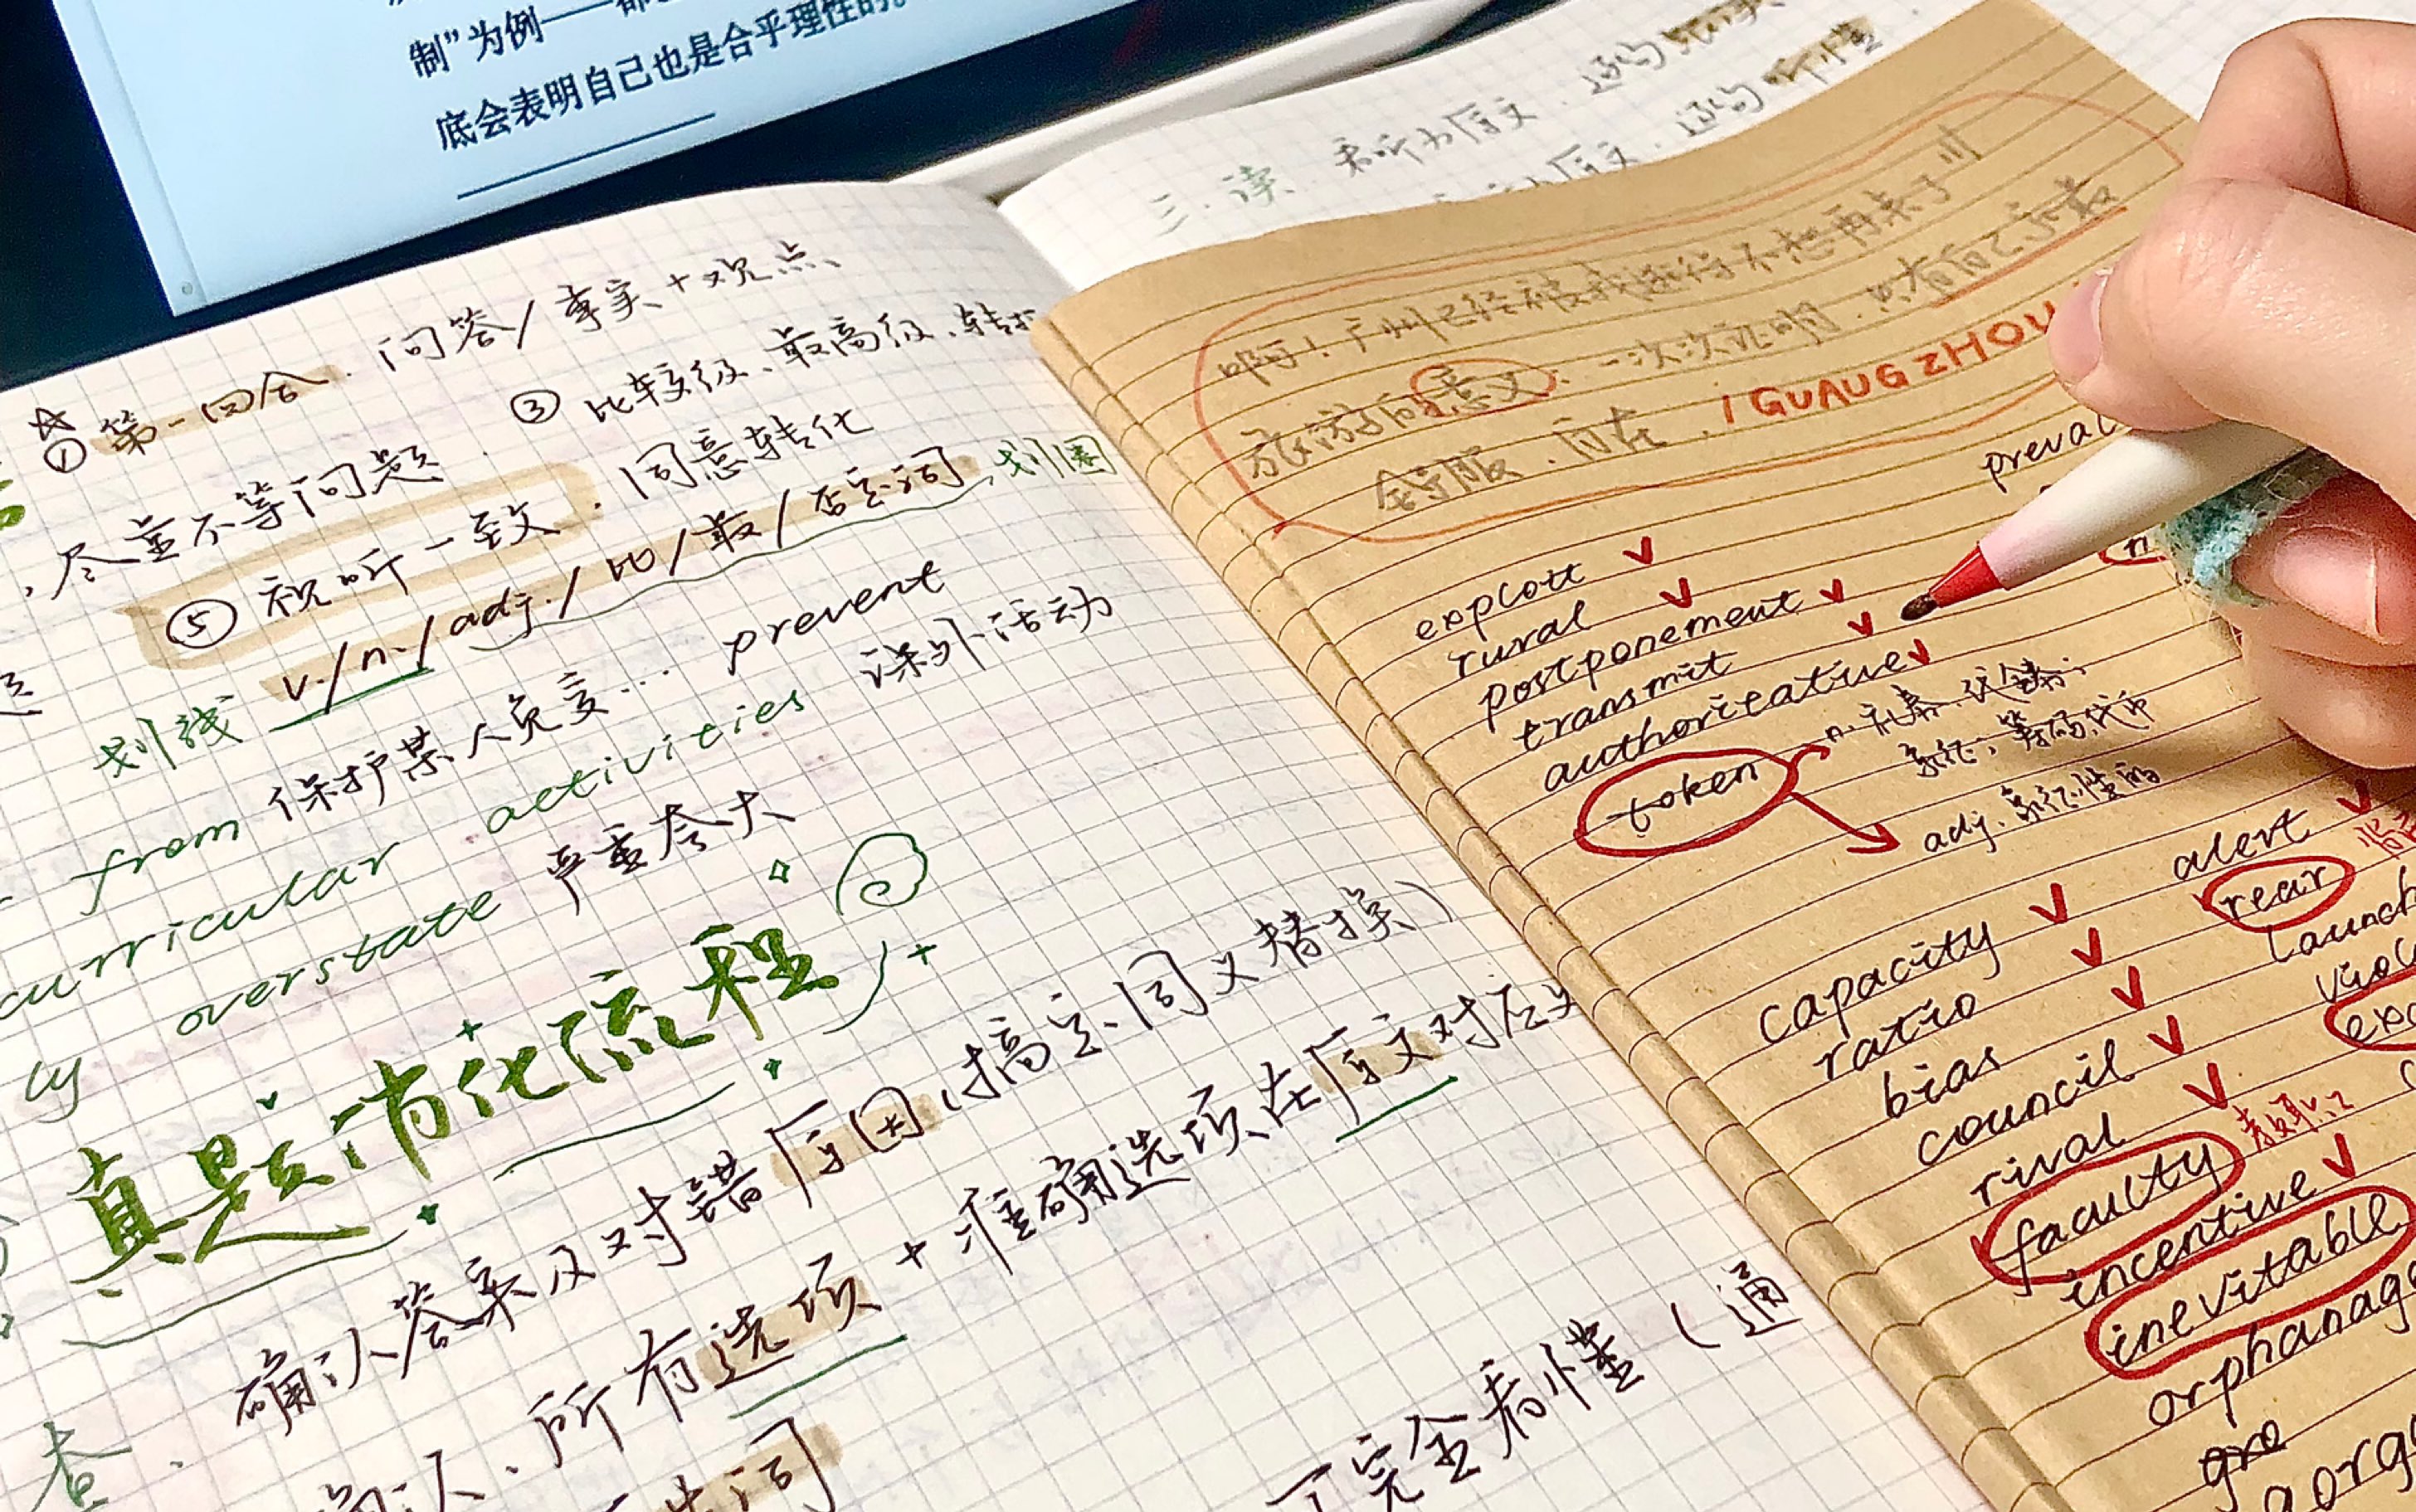 制”为例——都
底会表明自己也是合乎理性的。
三.读、看听力原文.逐句
原文.逐句听懂
①第一回合.问答/事实+观点
③比较级、最高级、转折
尽量不等问题
⑤视听一致.同意转化
划线 v./n./adj./比/最/否定词,划圈
from 保护某人免受... prevent
curricular activities 课外活动
ly overstate 严重夸大
真题消化流程
确认答案及对错原因(搞定同义替换)
确认、所有选项+准确选项在原文对应
查.
完全看懂(通
啊!广州已经被我逛得不想再来了
旅游的意义.一次次证明.只有自己家最
舒服.自在.
GUAUGZHOU
explott
rural
postponement
transmit
authoritative
token
n.礼券、代金券;
象征;筹码,代币
adj.象征性的
alert
rear
launch
capacity
ratio
bias
council
rival
faculty 教职工
incentive
inevitable
orphanage